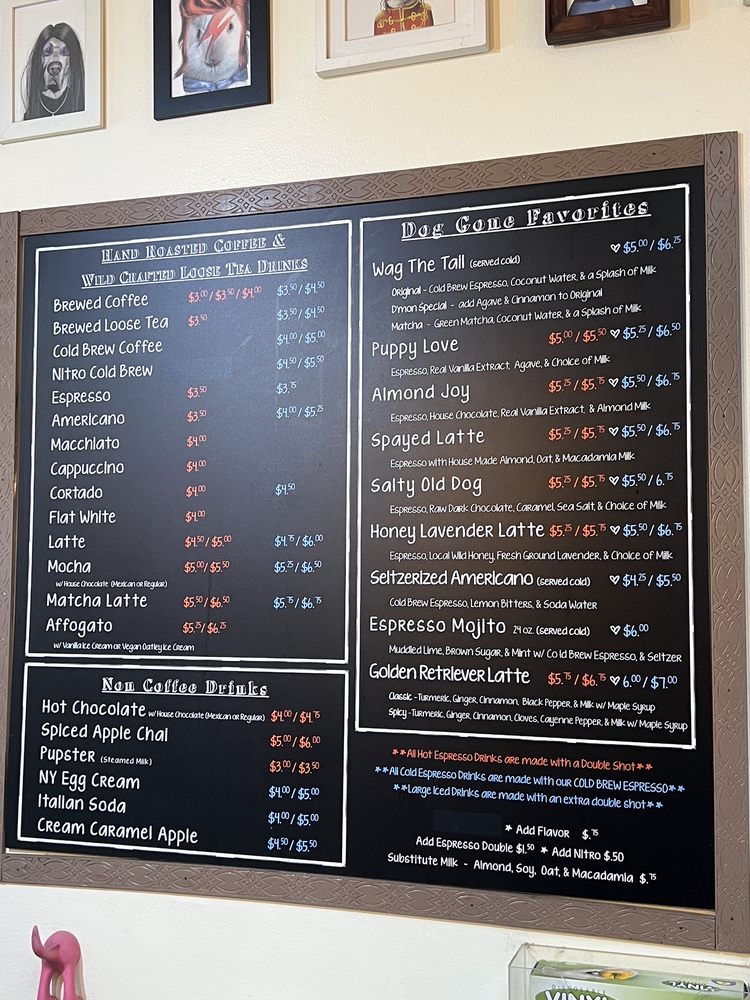 Hand Roasted Coffee &
Wild Crafted Loose Tea Drinks
Brewed Coffee $3.00 / $3.50 / $4.00 $3.50 / $4.50
Brewed Loose Tea $3.50 $3.50 / $4.50
Cold Brew Coffee $4.00 / $5.00
Nitro Cold Brew $4.50 / $5.50
Espresso $3.50 $3.75
Americano $3.50 $4.00 / $5.25
Macchiato $4.00
Cappuccino $4.00
Cortado $4.00 $4.50
Flat White $4.00
Latte $4.50 / $5.00 $4.75 / $6.00
Mocha $5.00 / $5.50 $5.25 / $6.50
w/ House Chocolate (Mexican or Regular)
Matcha Latte $5.50 / $6.50 $5.75 / $6.75
Affogato $5.25 / $6.25
w/ Vanilla Ice Cream or Vegan Oatley Ice Cream
Non Coffee Drinks
Hot Chocolate w/ House Chocolate (Mexican or Regular) $4.00 / $4.75
Spiced Apple Chai $5.00 / $6.00
Pupster (Steamed Milk) $3.00 / $3.50
NY Egg Cream $4.00 / $5.00
Italian Soda $4.00 / $5.00
Cream Caramel Apple $4.50 / $5.50
Dog Gone Favorites
Wag The Tail (served cold) ♡ $5.00 / $6.25
Original - Cold Brew Espresso, Coconut Water, & a Splash of Milk
D'mon Special - add Agave & Cinnamon to Original
Matcha - Green Matcha, Coconut Water, & a Splash of Milk
Puppy Love $5.00 / $5.50 ♡ $5.25 / $6.50
Espresso, Real Vanilla Extract, Agave, & Choice of Milk
Almond Joy $5.25 / $5.75 ♡ $5.50 / $6.75
Espresso, House Chocolate, Real Vanilla Extract, & Almond Milk
Spayed Latte $5.25 / $5.75 ♡ $5.50 / $6.75
Espresso with House Made Almond, Oat, & Macadamia Milk
Salty Old Dog $5.25 / $5.75 ♡ $5.50 / 6.75
Espresso, Raw Dark Chocolate, Caramel, Sea Salt, & Choice of Milk
Honey Lavender Latte $5.25 / $5.75 ♡ $5.50 / $6.75
Espresso, Local Wild Honey, Fresh Ground Lavender, & Choice of Milk
Seltzerized Americano (served cold) ♡ $4.25 / $5.50
Cold Brew Espresso, Lemon Bitters, & Soda Water
Espresso Mojito 24 oz. (served cold) ♡ $6.00
Muddled Lime, Brown Sugar, & Mint w/ Cold Brew Espresso, & Seltzer
Golden Retriever Latte $5.75 / $6.75 ♡ 6.00 / $7.00
Classic - Turmeric, Ginger, Cinnamon, Black Pepper, & Milk w/ Maple Syrup
Spicy - Turmeric, Ginger, Cinnamon, Cloves, Cayenne Pepper, & Milk w/ Maple Syrup
**All Hot Espresso Drinks are made with a Double Shot**
**All Cold Espresso Drinks are made with our COLD BREW ESPRESSO**
**Large Iced Drinks are made with an extra double shot**
* Add Flavor $.75
Add Espresso Double $1.50 * Add Nitro $.50
Substitute Milk - Almond, Soy, Oat, & Macadamia $.75
VINYL